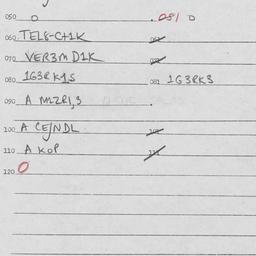 050 0 . 081 0
060 TEL8-C+1K
070 VER3M D1K
080 1G3RK1S 081 1G3RK3
090 A M2R1,3
100 A CE/NDL
110 A KOP
120 0